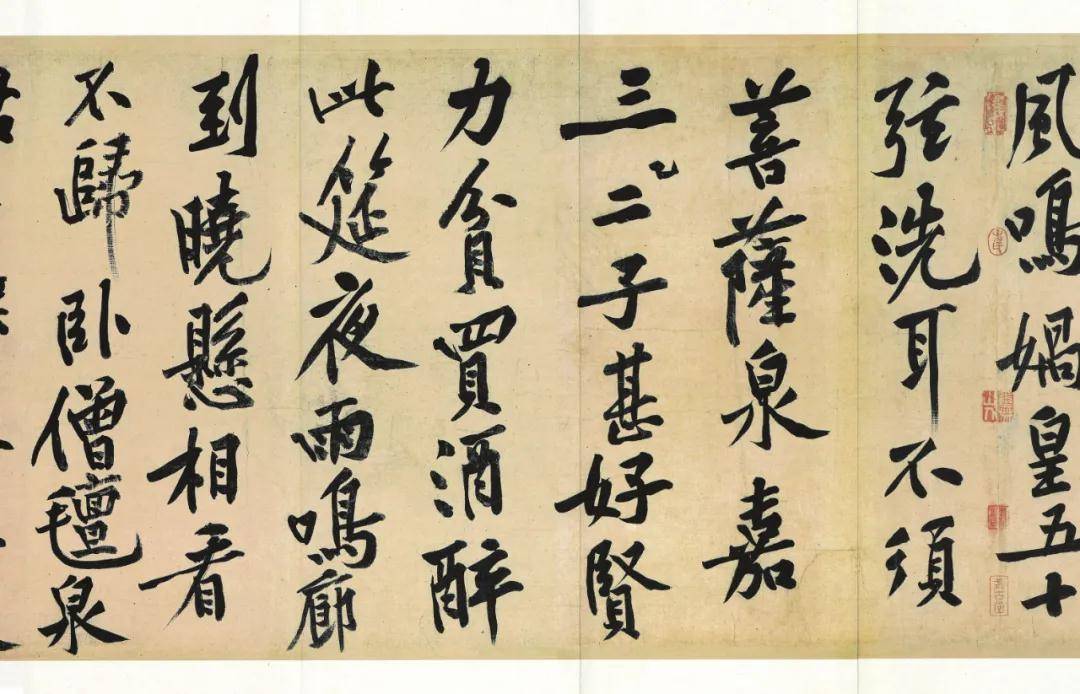 風鳴媧皇五十
弦洗耳不須
菩薩泉嘉
三二子甚好賢
力貧買酒醉
此筵夜雨鳴廊
到曉懸相看
不歸臥僧氈泉